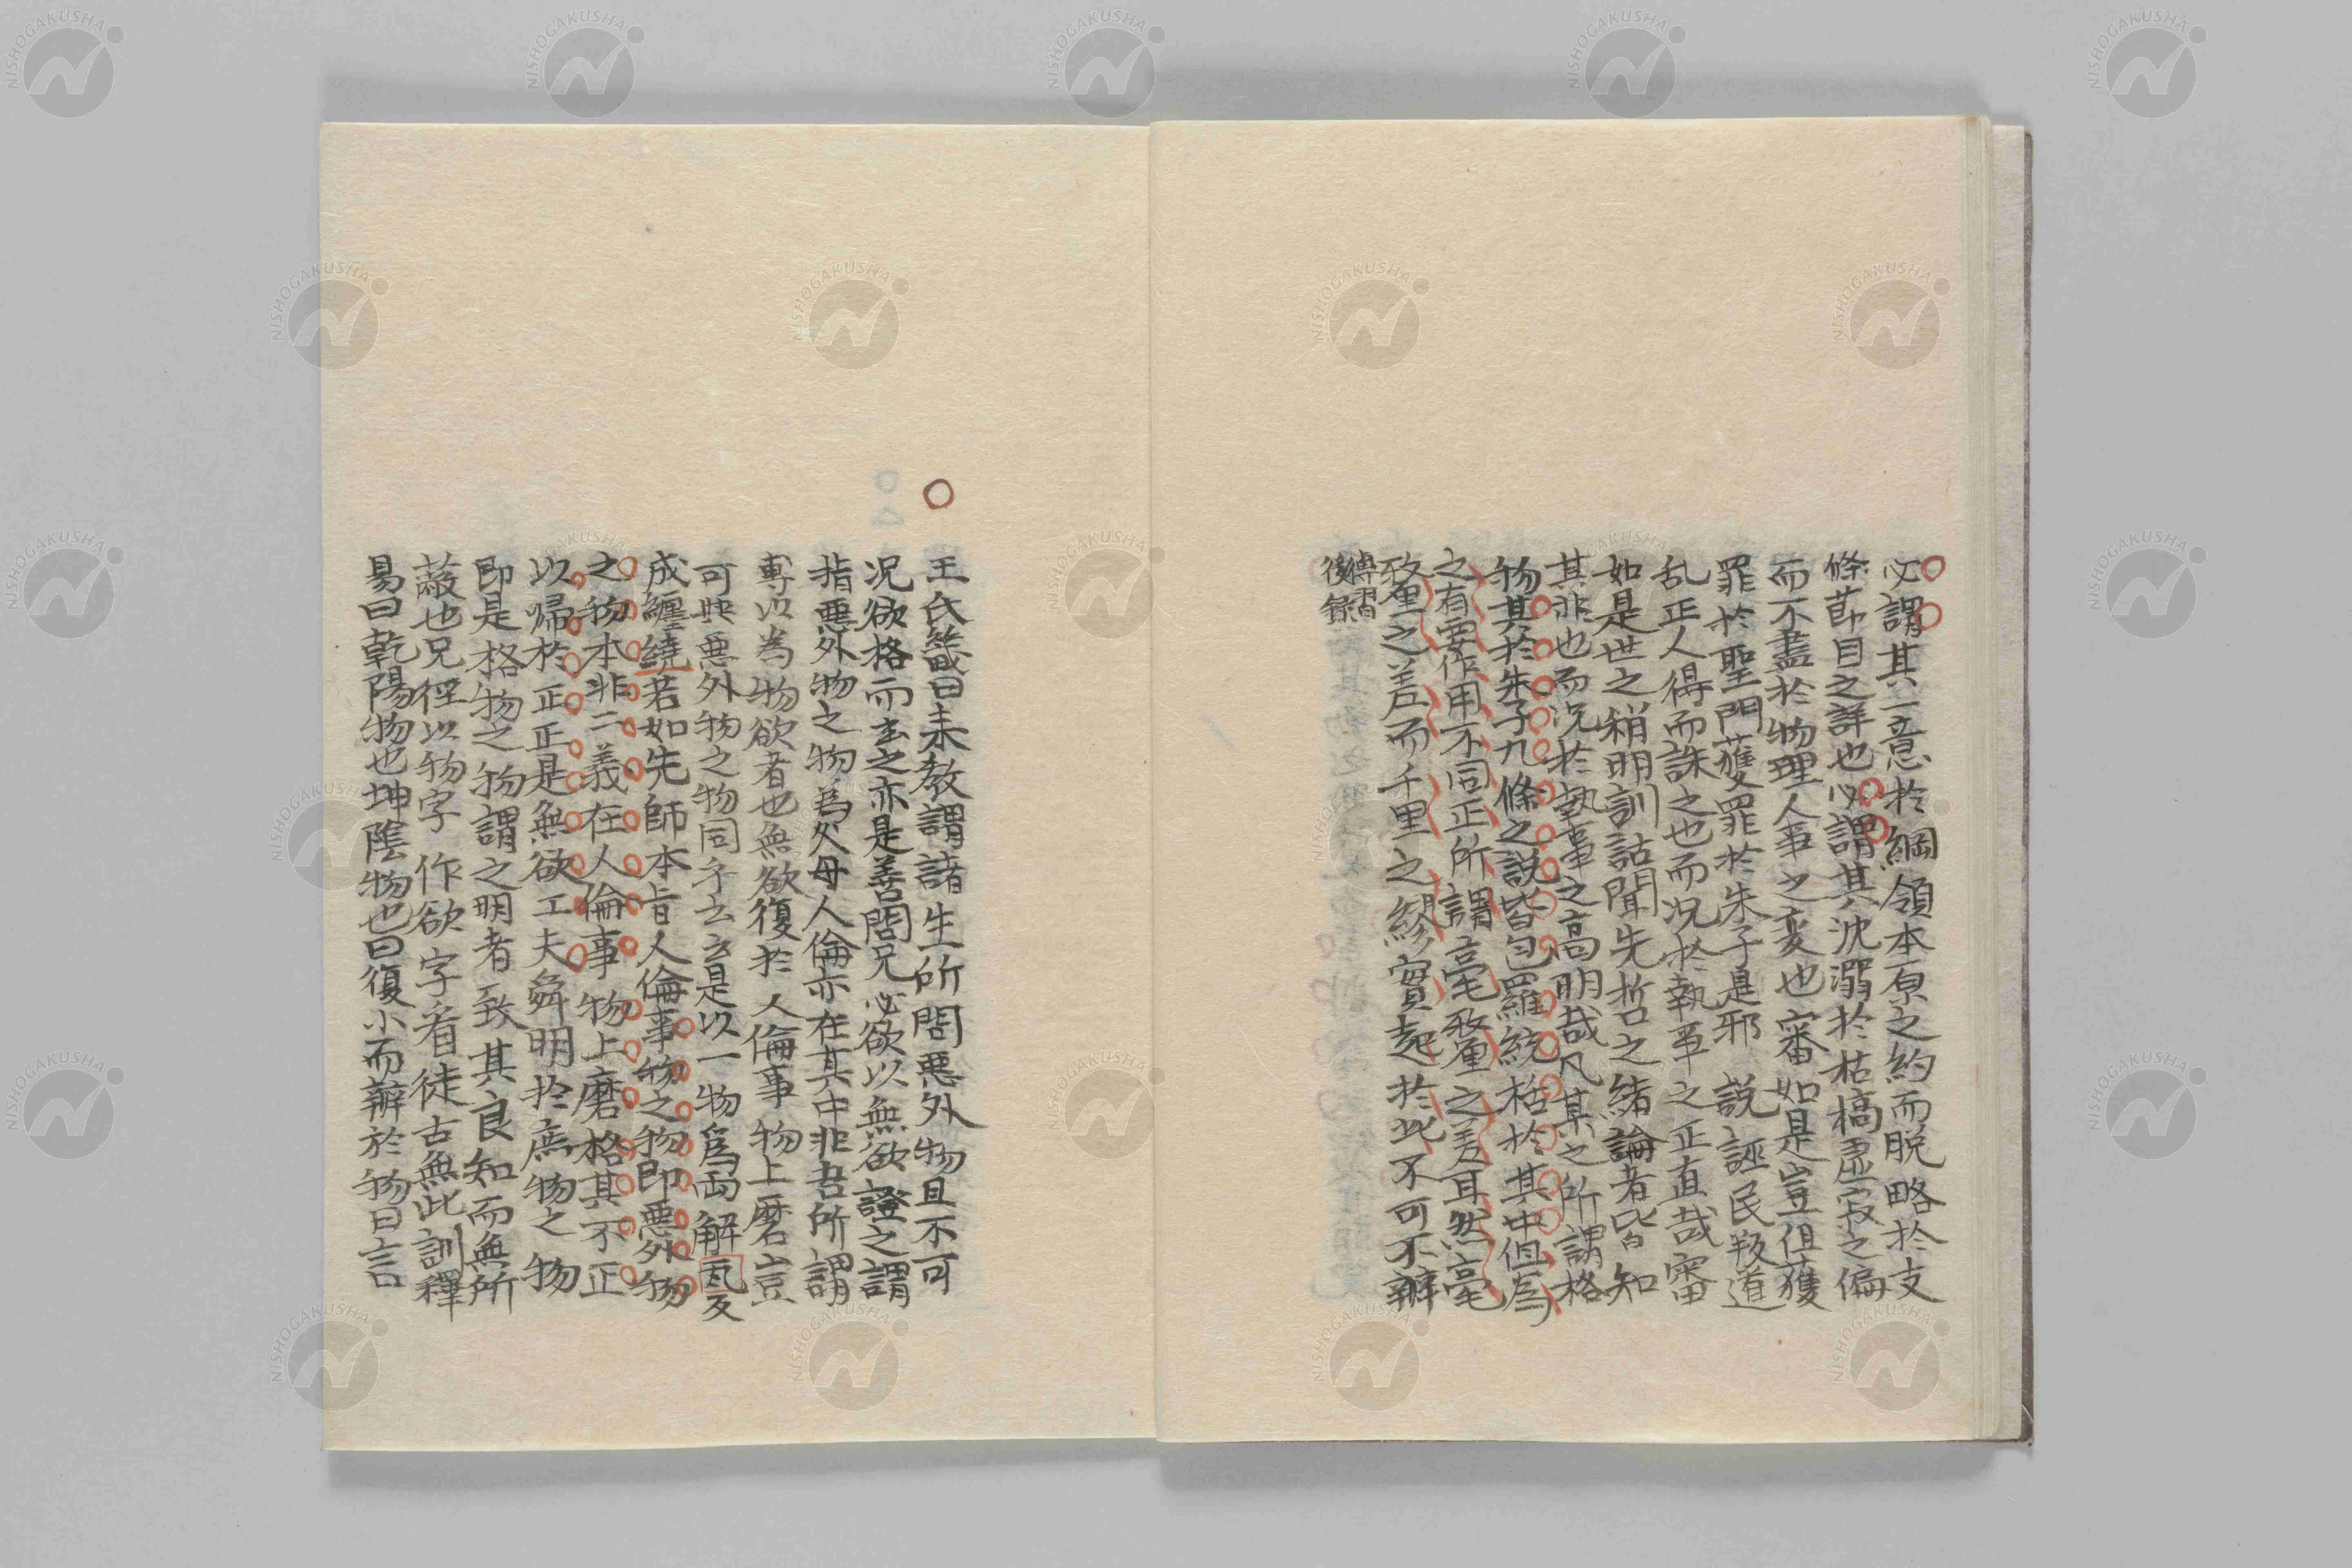 必謂其一意於綱領本原之約而脱略於支
條莭目之詳也必謂其沈溺於枯槁虛寂之偏
而不盡於物理人事之変也審如是豈但獲
罪於聖門獲罪於朱子是邪説誣民叛道
乱正人得而誅之也而況於執事之正直哉審
如是世之稍明訓詁聞先哲之緒論者皆知
其非也而況於執事之高明哉凡某之所謂格
物其於朱子九條之説皆包羅統括於其中但為
之有要作用不同正所謂毫釐之差耳然毫
釐之差而千里之繆實起於此不可不辨
傳習
後録
王氏畿曰来教謂諸生所問惡外物且不可
况欲格而去之亦是善問兄必欲以無欲證之謂
指惡外物之物為父母人倫亦在其中非吾所謂
専以為物欲者也無欲復於人倫事物上磨豈
可与惡外物之物同乎云云是以一物為両解反
成纏繞若如先師本旨人倫事物之物即惡外物
之物本非二義在人倫事物上磨格其不正
以帰於正正是無欲工夫舜明於庶物之物
即是格物之物謂之明者致其良知而無所
蔽也兄徑以物字作欲字看徒古無此訓釋
易曰乾陽物也坤陰物也曰復小而辨於物曰言
NISHOGAKUSHA